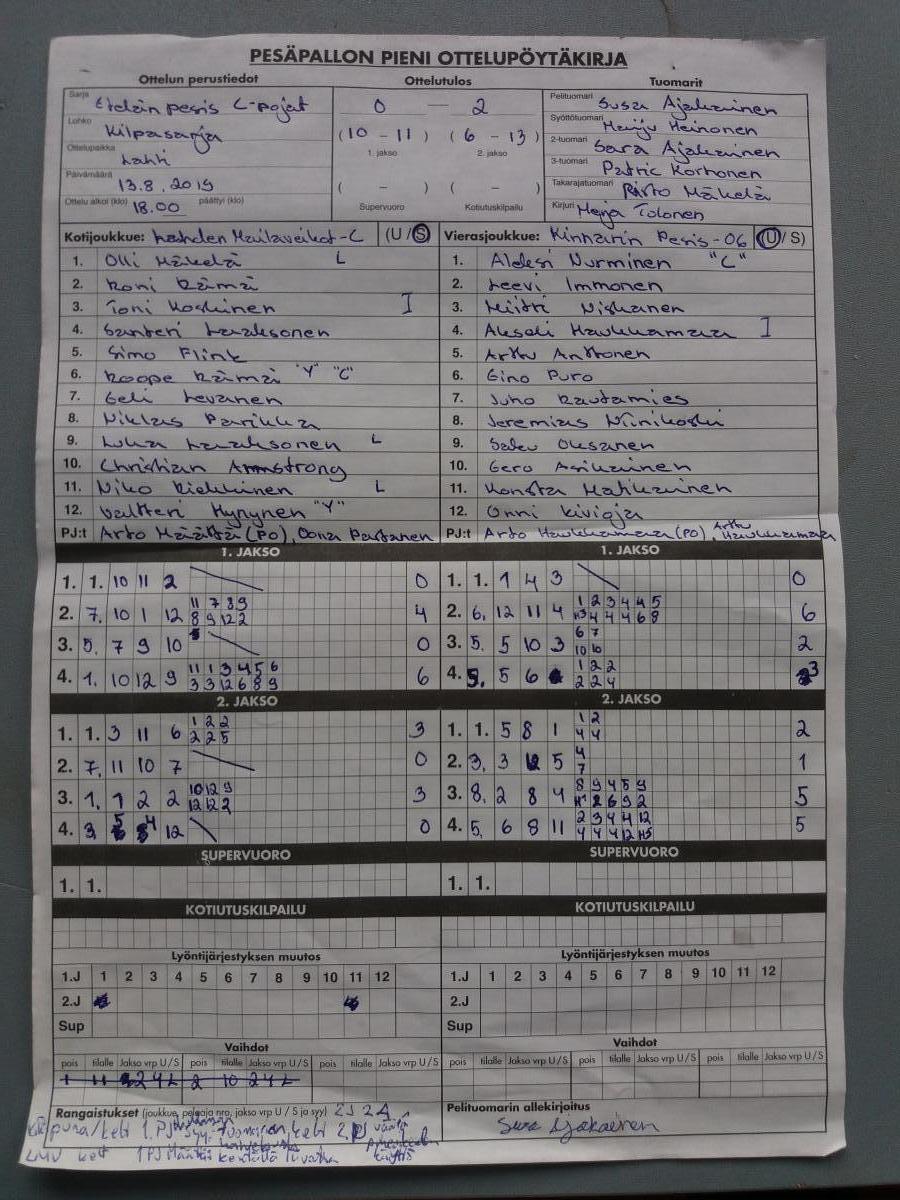 PESÄPALLON PIENI OTTELUPÖYTÄKIRJA
Ottelun perustiedot Ottelutulos Tuomarit
Sarja Etelän pesis C-pojat 0 — 2 Pelituomari Susa Ajakainen
Lohko Kilpasarja (10 - 11) (6 - 13) Syöttötuomari Heinonen
1. jakso 2. jakso 2-tuomari Sara Ajakainen
Ottelupaikka Lahti 3-tuomari Patric Korhonen
Päivämäärä 13.8.2019 ( - ) ( - ) Takarajatuomari Risto Mäkelä
Ottelu alkoi (klo) 18.00 päättyi (klo) Supervuoro Kotiutuskilpailu Kirjuri Merja Tolonen
Kotijoukkue: Lahden Mailaveikot-C (U/S) Vierasjoukkue: Kinnarin Pesis-06 (U/S)
1. Olli Mäkelä L 1. Nurminen "C"
2. Roni Rämä 2. Leevi Immonen
3. Toni Koskinen I 3. Miitri Niskanen
4. Santeri Laaksonen 4. Akseli Haukkamaa I
5. Simo Flink 5. Arttu Anttonen
6. Roope Rämä "Y" "C" 6. Gino Puro
7. Eeli Levanen 7. Juho Rautamies
8. Niklas Parikka 8. Jeremias Niinikoski
9. Luka Laaksonen L 9. Oksanen
10. Christian Armstrong 10. Eero Asikainen
11. Niko Riekkinen L 11. Konsta Matikainen
12. Valtteri Hynynen "Y" 12. Onni Kivioja
PJ:t Arto Määttä (PO), Oona Partanen PJ:t Arto Haukkamaa (PO), Arttu Haukkamaa
1. JAKSO 1. JAKSO
1. 1. 10 11 2 0 1. 1. 1 4 3 0
11 7 8 9 1 2 3 4 4 5
2. 7. 10 1 12 8 9 12 2 4 2. 6. 12 11 4 4 4 4 6 8 6
3. 5. 7 9 10 0 3. 5. 5 10 3 6 7 2
10 10
11 1 3 4 5 6 1 2 2
4. 1. 10 12 9 3 3 12 6 8 9 6 4. 5. 5 6 2 2 4 3
2. JAKSO 2. JAKSO
1 2 2 1 2
1. 1. 3 11 6 2 2 5 3 1. 1. 5 8 1 4 4 2
2. 7. 11 10 7 0 2. 3. 3 12 5 4 1
7
10 12 9 8 9 4 5 9
3. 1. 1 2 2 12 12 2 3 3. 8. 2 8 4 2 6 9 2 5
2 3 4 4 12
4. 3. 5 4 12 0 4. 5. 6 8 11 4 4 4 12 5
SUPERVUORO SUPERVUORO
1. 1. 1. 1.
KOTIUTUSKILPAILU KOTIUTUSKILPAILU
Lyöntijärjestyksen muutos Lyöntijärjestyksen muutos
1.J 1 2 3 4 5 6 7 8 9 10 11 12 1.J 1 2 3 4 5 6 7 8 9 10 11 12
2.J 2.J
Sup Sup
Vaihdot Vaihdot
pois tilalle Jakso vrp U/S pois tilalle Jakso vrp U/S pois tilalle Jakso vrp U/S pois tilalle Jakso vrp U/S
1 11 2 4 L 2 10 2 4 L
Rangaistukset (joukkue, pelaaja nro, jakso vrp U / S ja syy) 2J 2A Pelituomarin allekirjoitus
1. PJ Susa Ajakainen
1 PJ Määttä